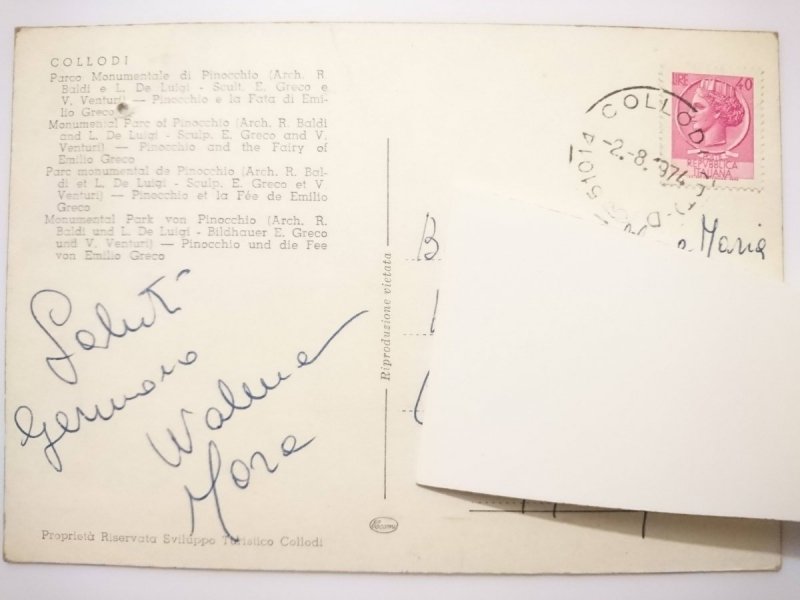 COLLODI
Parco Monumentale di Pinocchio (Arch. R.
Baldi e L. De Luigi - Scult. E. Greco e
V. Venturi) — Pinocchio e la Fata di Emi-
lio Greco
Monumental Parc of Pinocchio (Arch. R. Baldi
and L. De Luigi - Sculp. E. Greco and V.
Venturi) — Pinocchio and the Fairy of
Emilio Greco
Parc monumental de Pinocchio (Arch. R. Bal-
di et L. De Luigi - Sculp. E. Greco et V
Venturi) — Pinocchio et la Fée de Emilio
Greco
Monumental Park von Pinocchio (Arch. R.
Baldi und L. De Luigi - Bildhauer E. Greco
und V. Venturi) — Pinocchio und die Fee
von Emilio Greco
Saluti
Germano
Mara
Proprietà Riservata Sviluppo Turistico Collodi
Riproduzione vietata
LIRE 40
REPVBBLICA
ITALIANA
51014 COLLODI
-2.-8.1974
Maria